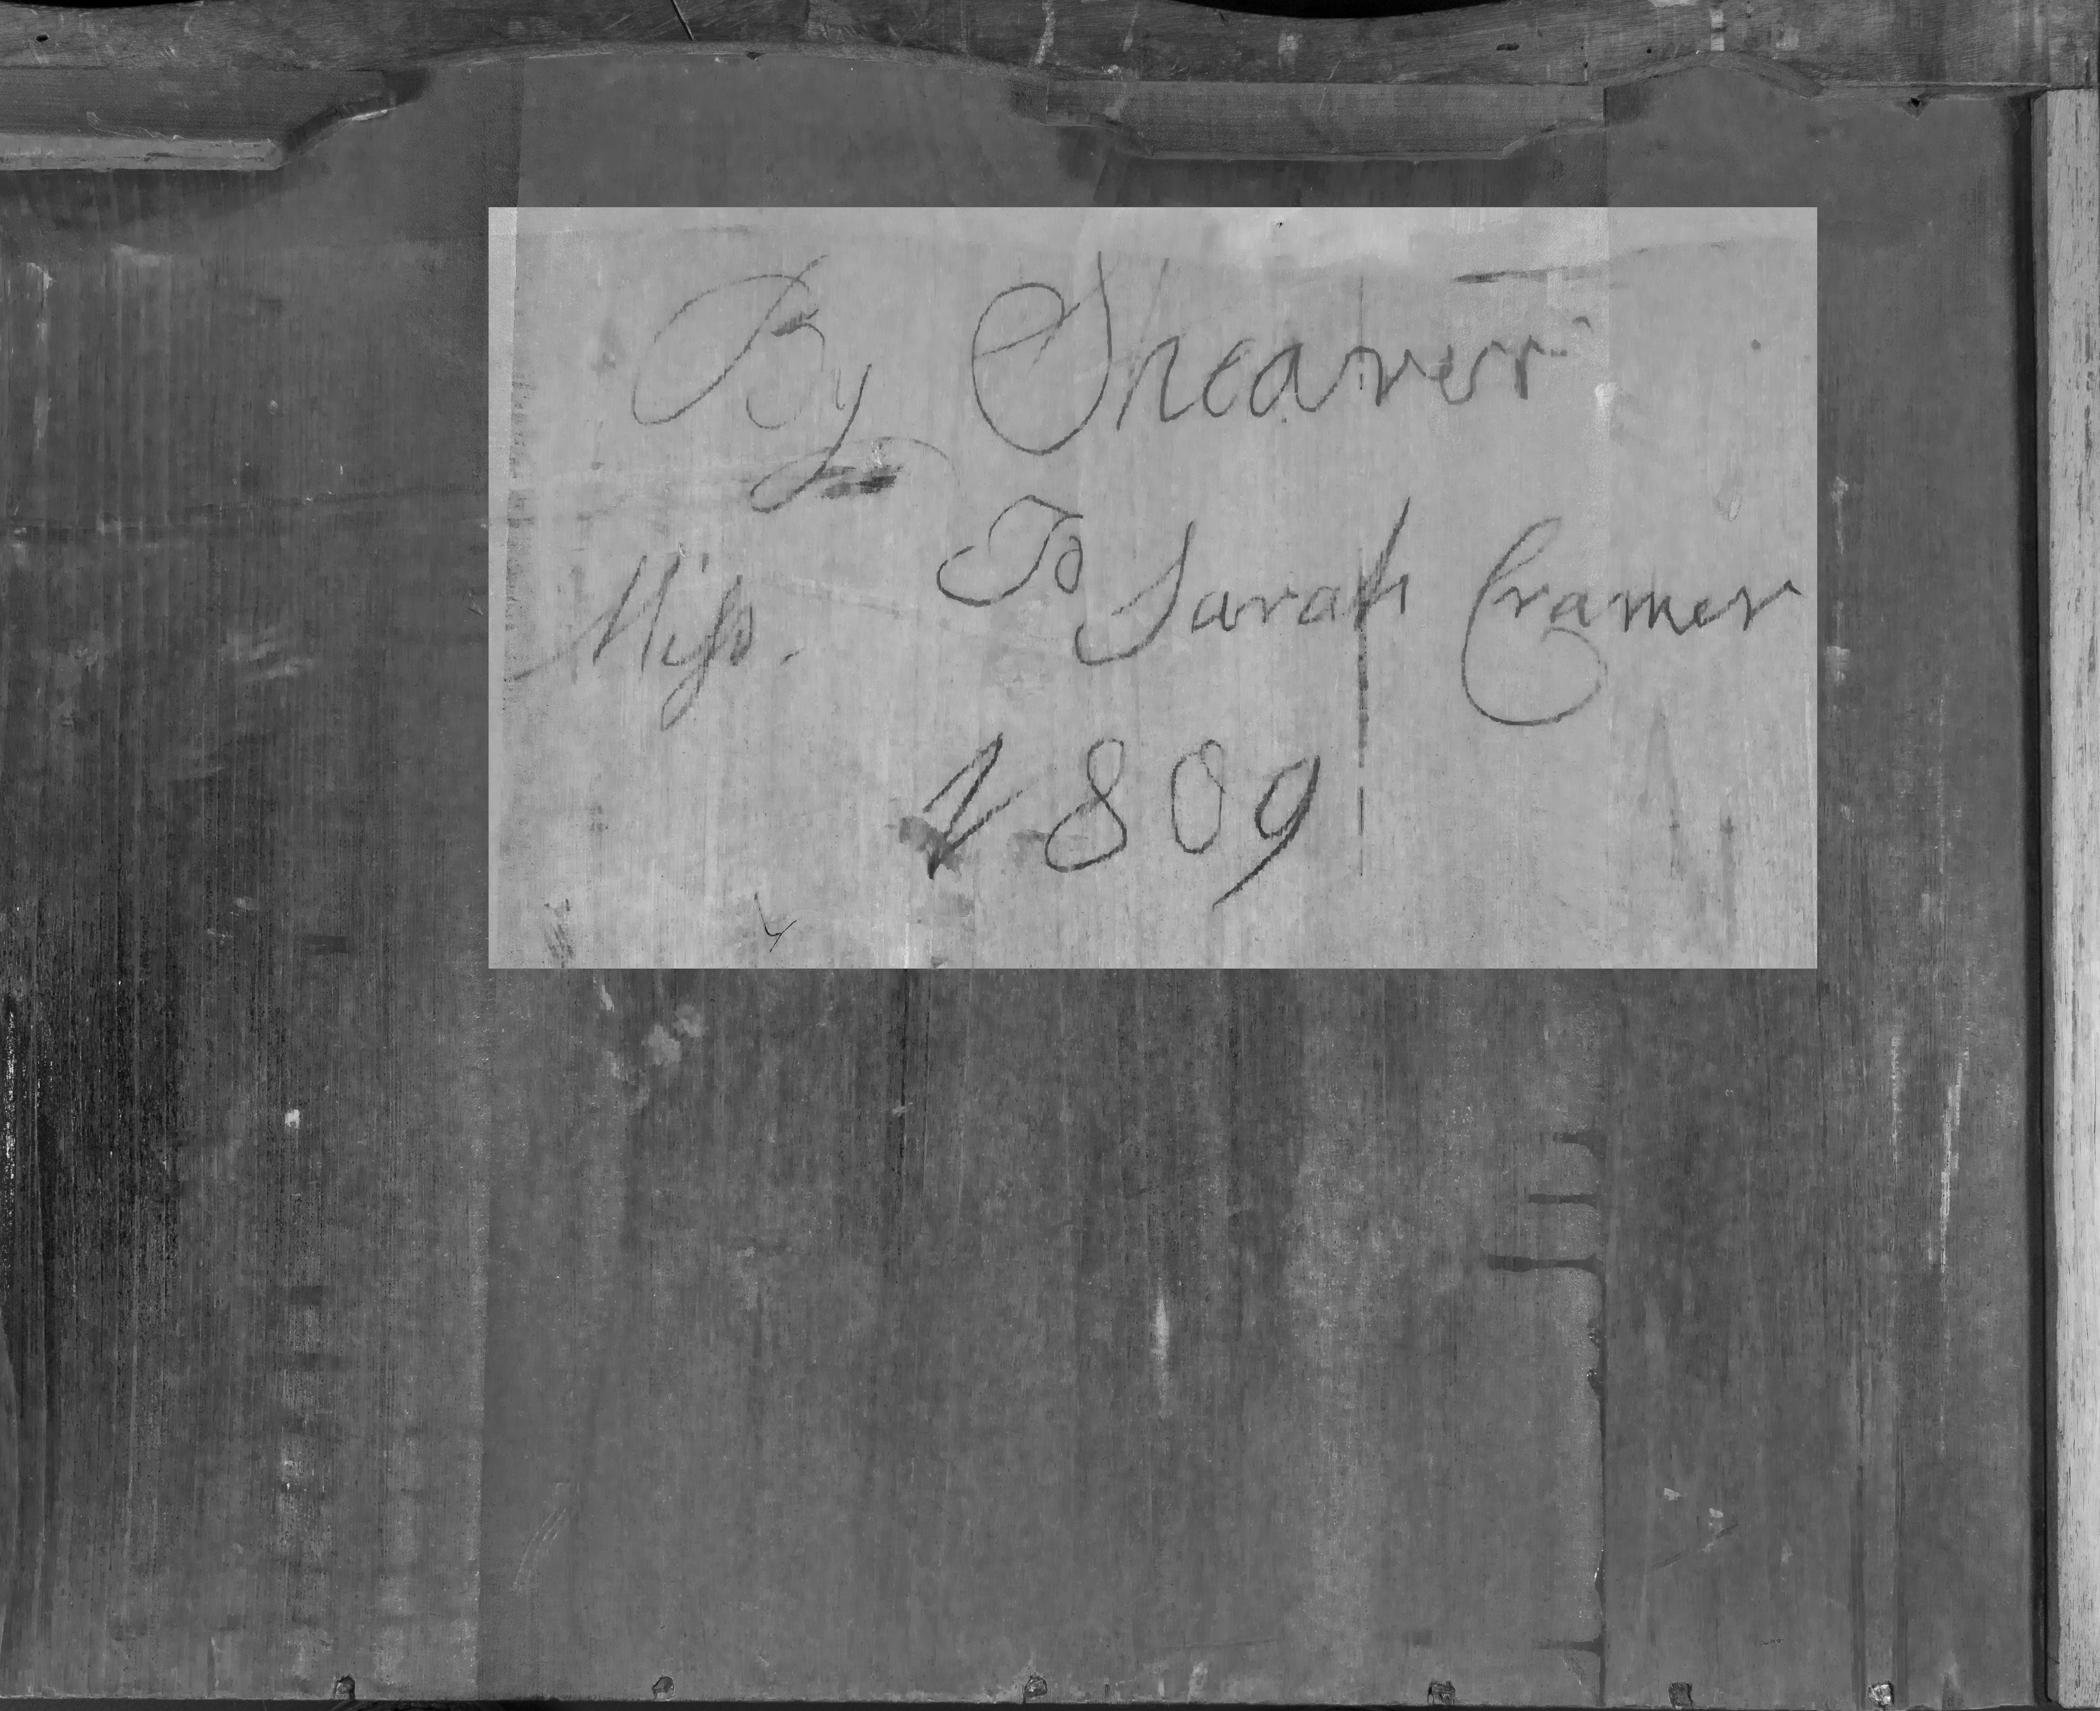 By Shearer
To
Miss. Sarah Cramer
1809